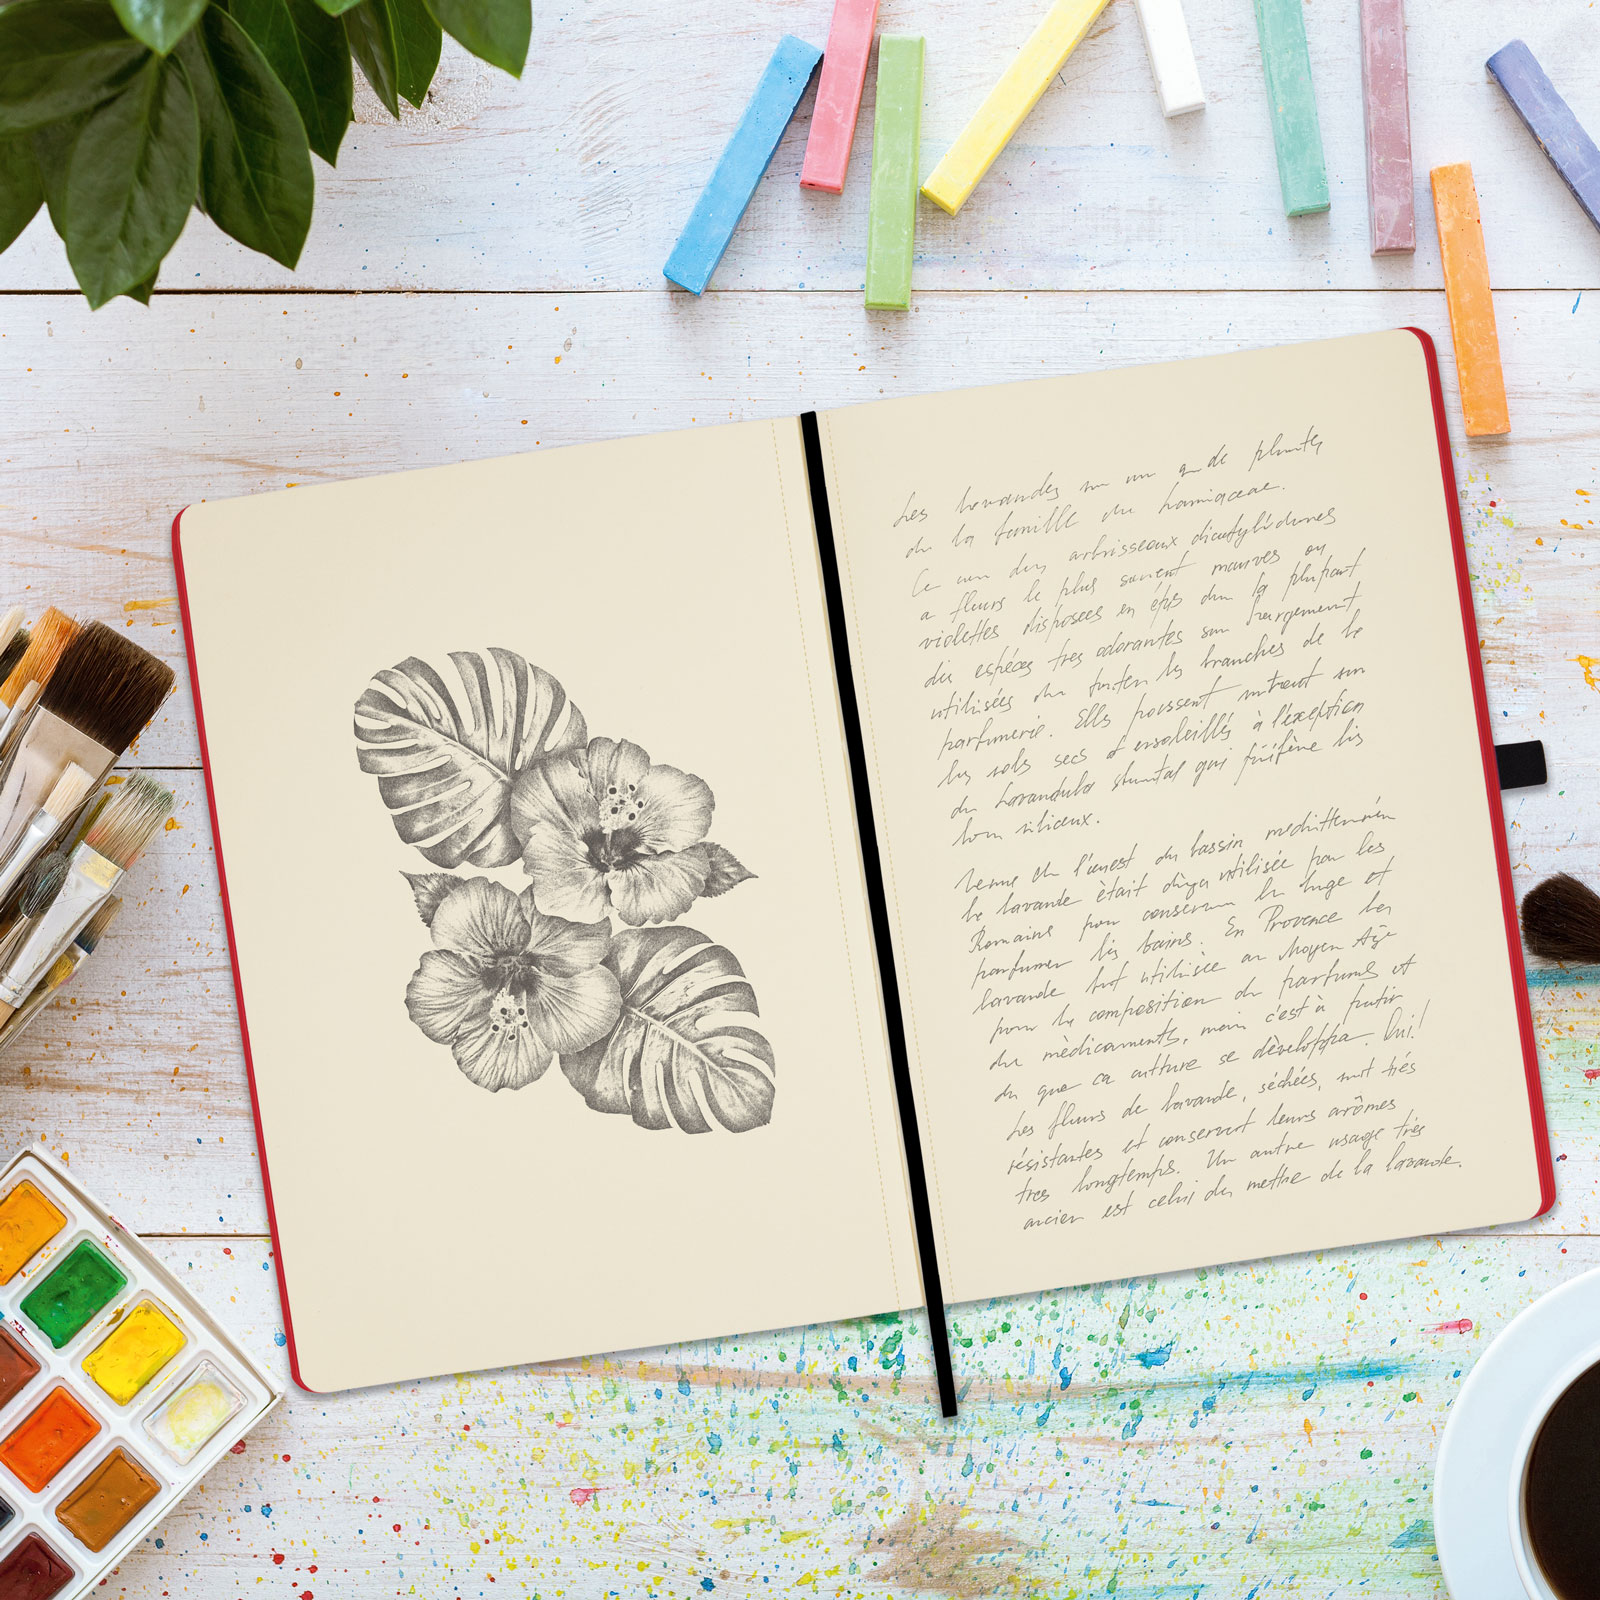 Les lavandes un de plantes
de la famille du Lamiaceae.
Ce arbrisseaux dicotylédones
a fleurs le plus souvent mauves ou
violettes disposées en épis la plupart
des espèces tres odorantes largement
utilisées branches de la
parfumerie. Elles poussent
les sols secs et ensoleillés à l'exception
du Lavandula qui préfère les
siliceux.
Venue de l'ouest du bassin mediterranéen
la lavande était dèja utilisée par les
Romains pour conserver le linge et
parfumer les bains. En Provence la
lavande fut utilisée au Moyen Age
pour la composition de parfums et
du mèdicaments, mais c'est à partir
que ca culture se dèveloppa. Oui!
Les fleurs de lavande, séchées, sont trés
résistantes et conservent leurs arômes
tres longtemps. Un autre usage tres
ancien est celui de mettre de la lavande.